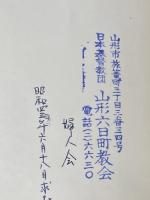 山形市旅篭町三丁目三番三四号
日本基督教団 山形六日町教会
電話(二)三六三〇
婦人会
昭和四五年六月十八日求